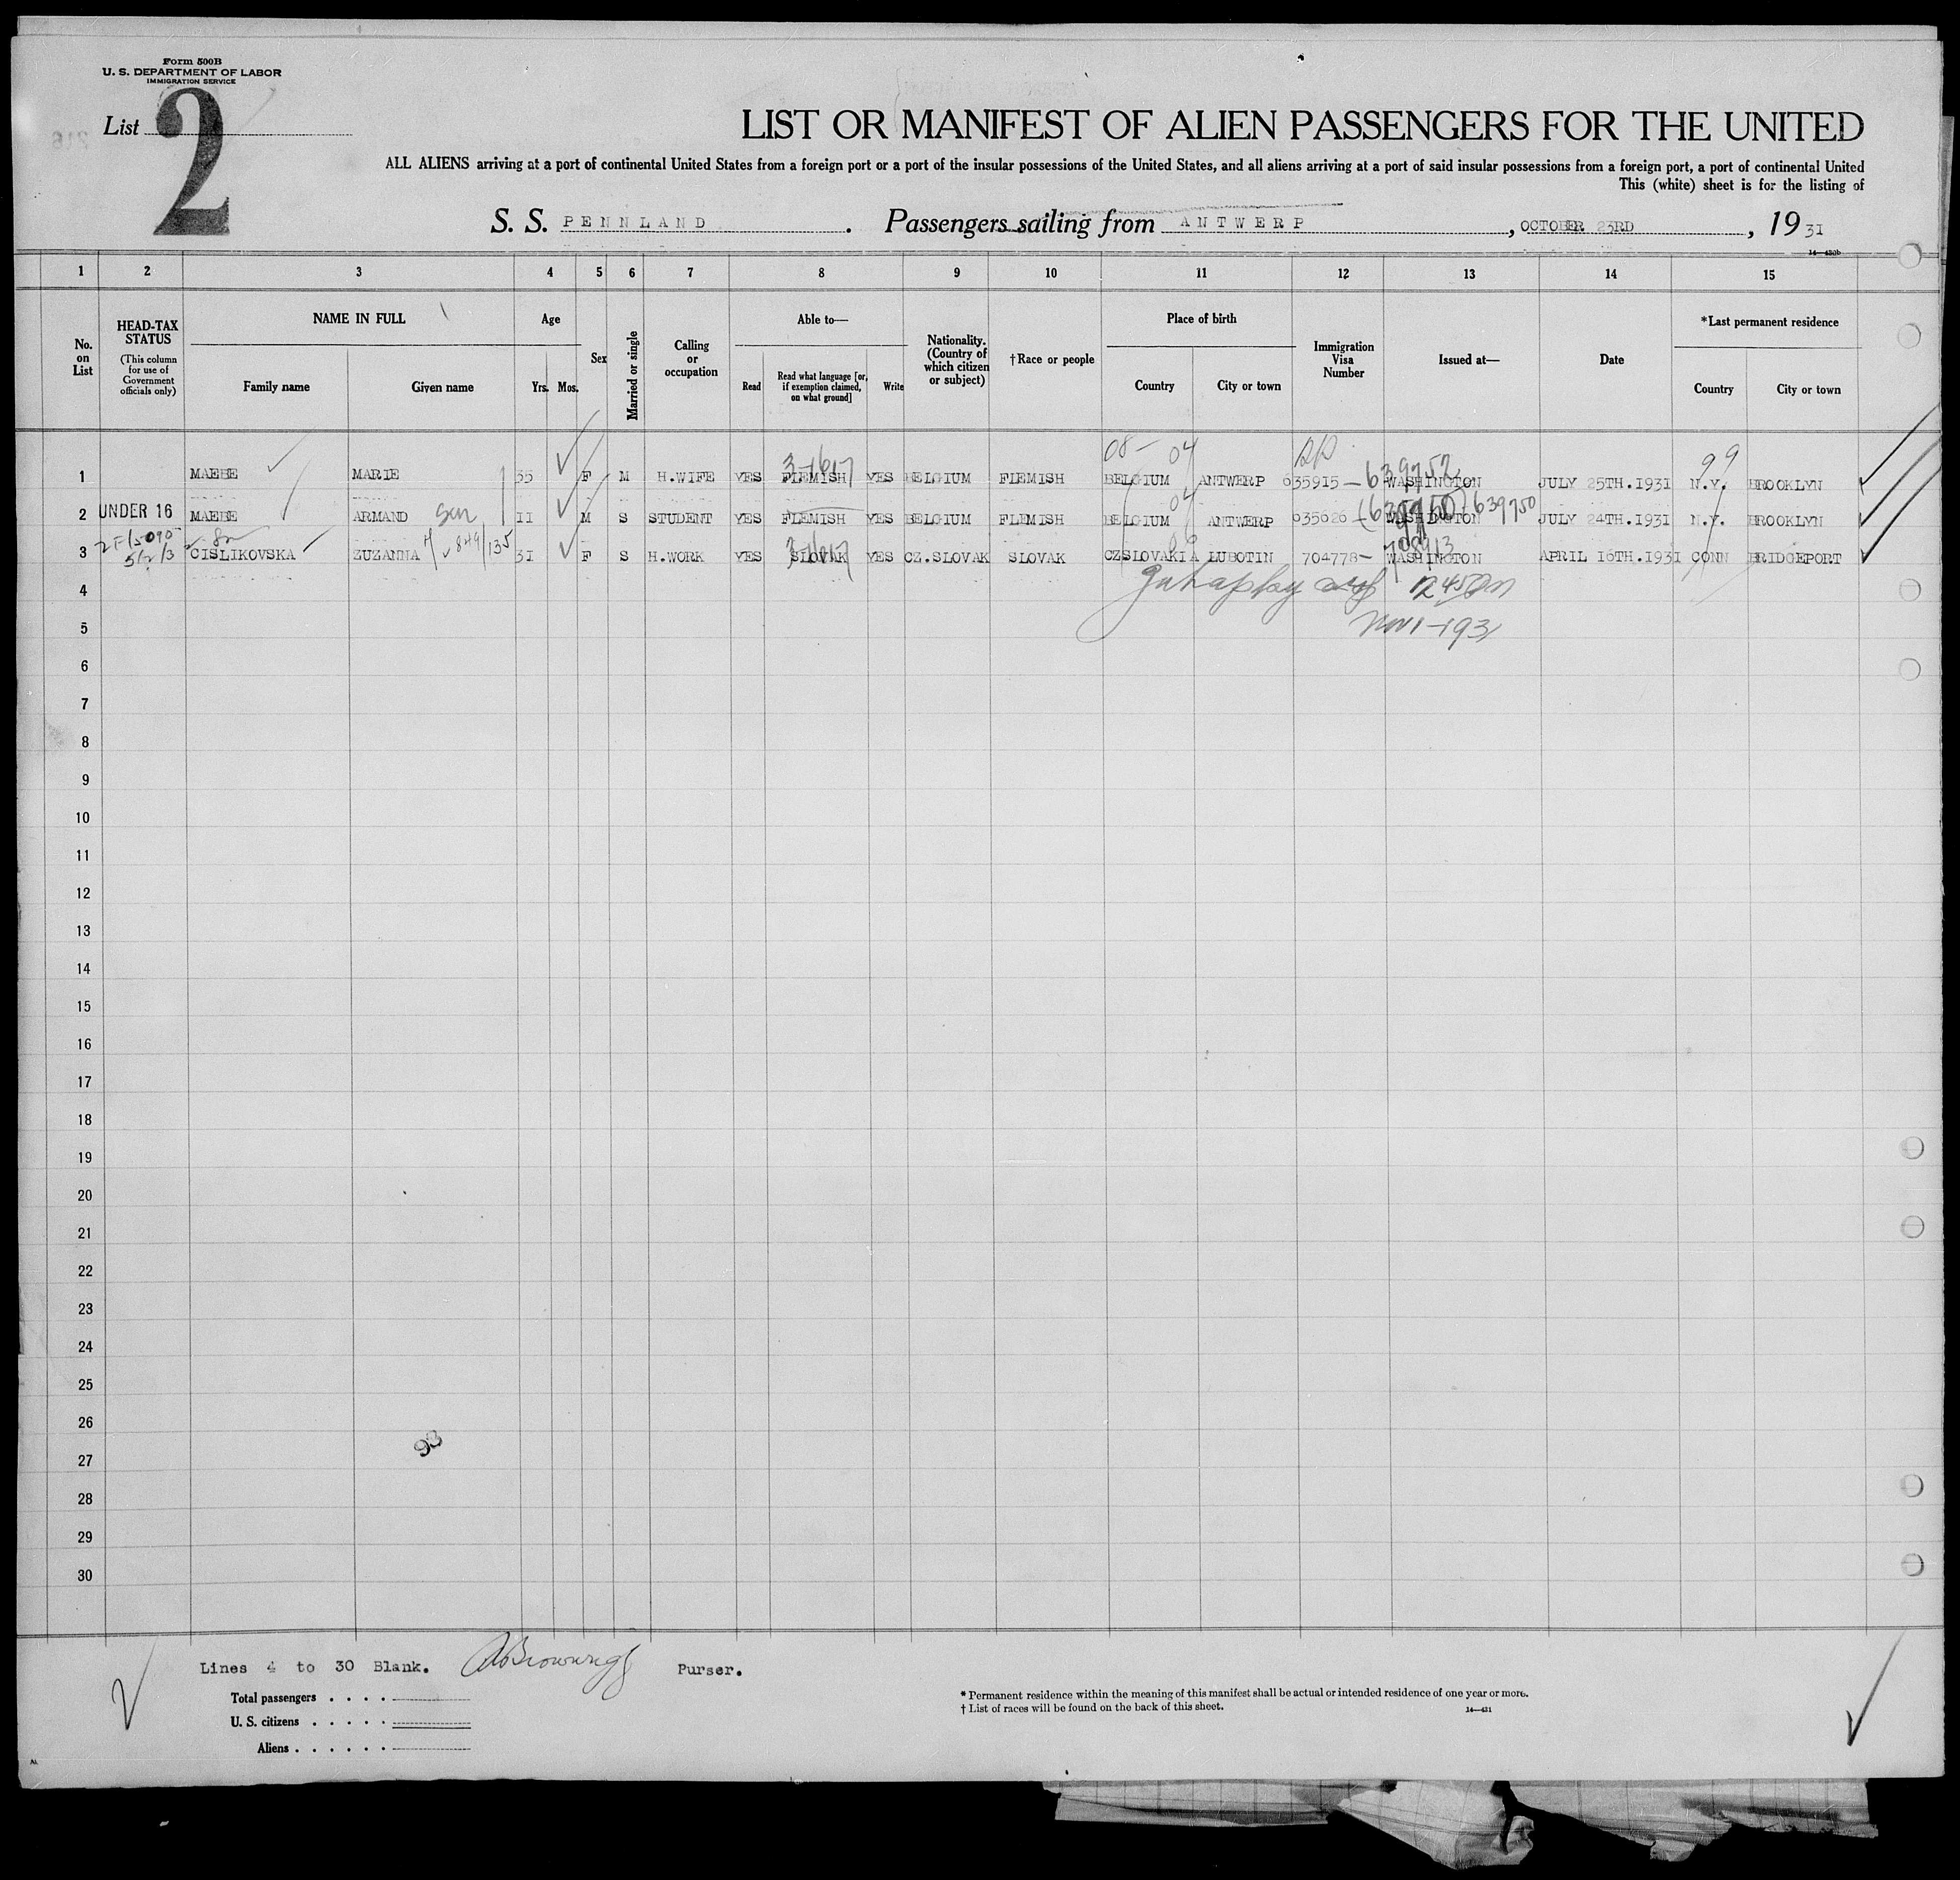 Form 500B
U. S. DEPARTMENT OF LABOR
IMMIGRATION SERVICE
List 2
LIST OR MANIFEST OF ALIEN PASSENGERS FOR THE UNITED
ALL ALIENS arriving at a port of continental United States from a foreign port or a port of the insular possessions of the United States, and all aliens arriving at a port of said insular possessions from a foreign port, a port of continental United
This (white) sheet is for the listing of
S. S. PENNLAND . Passengers sailing from ANTWERP , OCTOBER 23RD , 19 31
14—430b
1 2 3 4 5 6 7 8 9 10 11 12 13 14 15
No. on List
HEAD-TAX STATUS (This column for use of Government officials only)
NAME IN FULL
Family name Given name
Age
Yrs. Mos.
Sex
Married or single
Calling or occupation
Able to—
Read Read what language [or, if exemption claimed, on what ground] Write
Nationality. (Country of which citizen or subject)
†Race or people
Place of birth
Country City or town
Immigration Visa Number
Issued at—
Date
*Last permanent residence
Country City or town
08- 04 99
1 MAEBE MARIE 35 F M H.WIFE YES FLEMISH YES BELGIUM FLEMISH BELGIUM ANTWERP 635915 – 639752 WASHINGTON JULY 25TH.1931 N.Y. BROOKLYN
2 UNDER 16 MAEBE ARMAND son 11 M S STUDENT YES FLEMISH YES BELGIUM FLEMISH BELGIUM ANTWERP 635626 WASHINGTON 639750 JULY 24TH.1931 N.Y. BROOKLYN
3 CISLIKOVSKA ZUZANNA 31 F S H.WORK YES SLOVAK YES CZ.SLOVAK SLOVAK CZSLOVAKIA LUBOTIN 704778– 708913 WASHINGTON APRIL 16TH.1931 CONN BRIDGEPORT
4 12 45 pm
5 Nov 1-1931
6
7
8
9
10
11
12
13
14
15
16
17
18
19
20
21
22
23
24
25
26
93
27
28
29
30
Lines 4 to 30 Blank. Purser.
Total passengers . . . .
U. S. citizens . . . . .
Aliens . . . . . .
* Permanent residence within the meaning of this manifest shall be actual or intended residence of one year or more.
† List of races will be found on the back of this sheet. 14—431